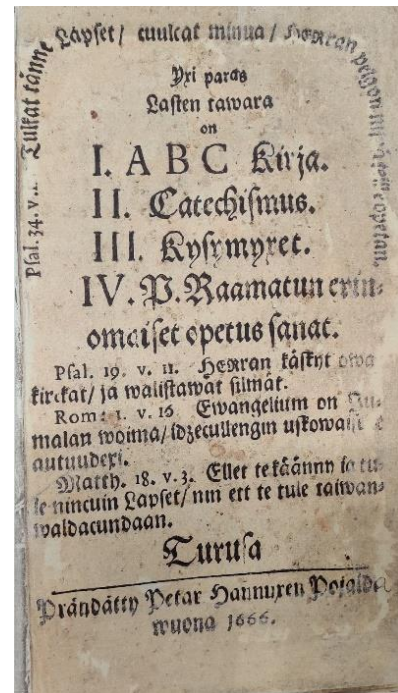 Psal. 34. v. Tulcat tänne Lapset/ cuulcat minua/ HERran pelgon opetan.
Yxi paras
Lasten tawara
on
I. A B C Kirja.
II. Catechismus.
III. Kysymyxet.
IV. P. Raamatun erin-
omaiset opetus sanat.
Psal. 19. v. 11. HERran käskyt owa
kirckat/ ja walistawat silmät.
Rom: 1. v. 16 Ewangelium on Ju-
malan woima/ idzecullengin
autuudexi.
Matth. 18. v. 3. Ellet te käänny ja tu-
le nincuin Lapset/ nin ett te tule taiwan-
waldacundaan.
Turusa
Prändätty Petar Hannuxen Pojalda
wuona 1666.